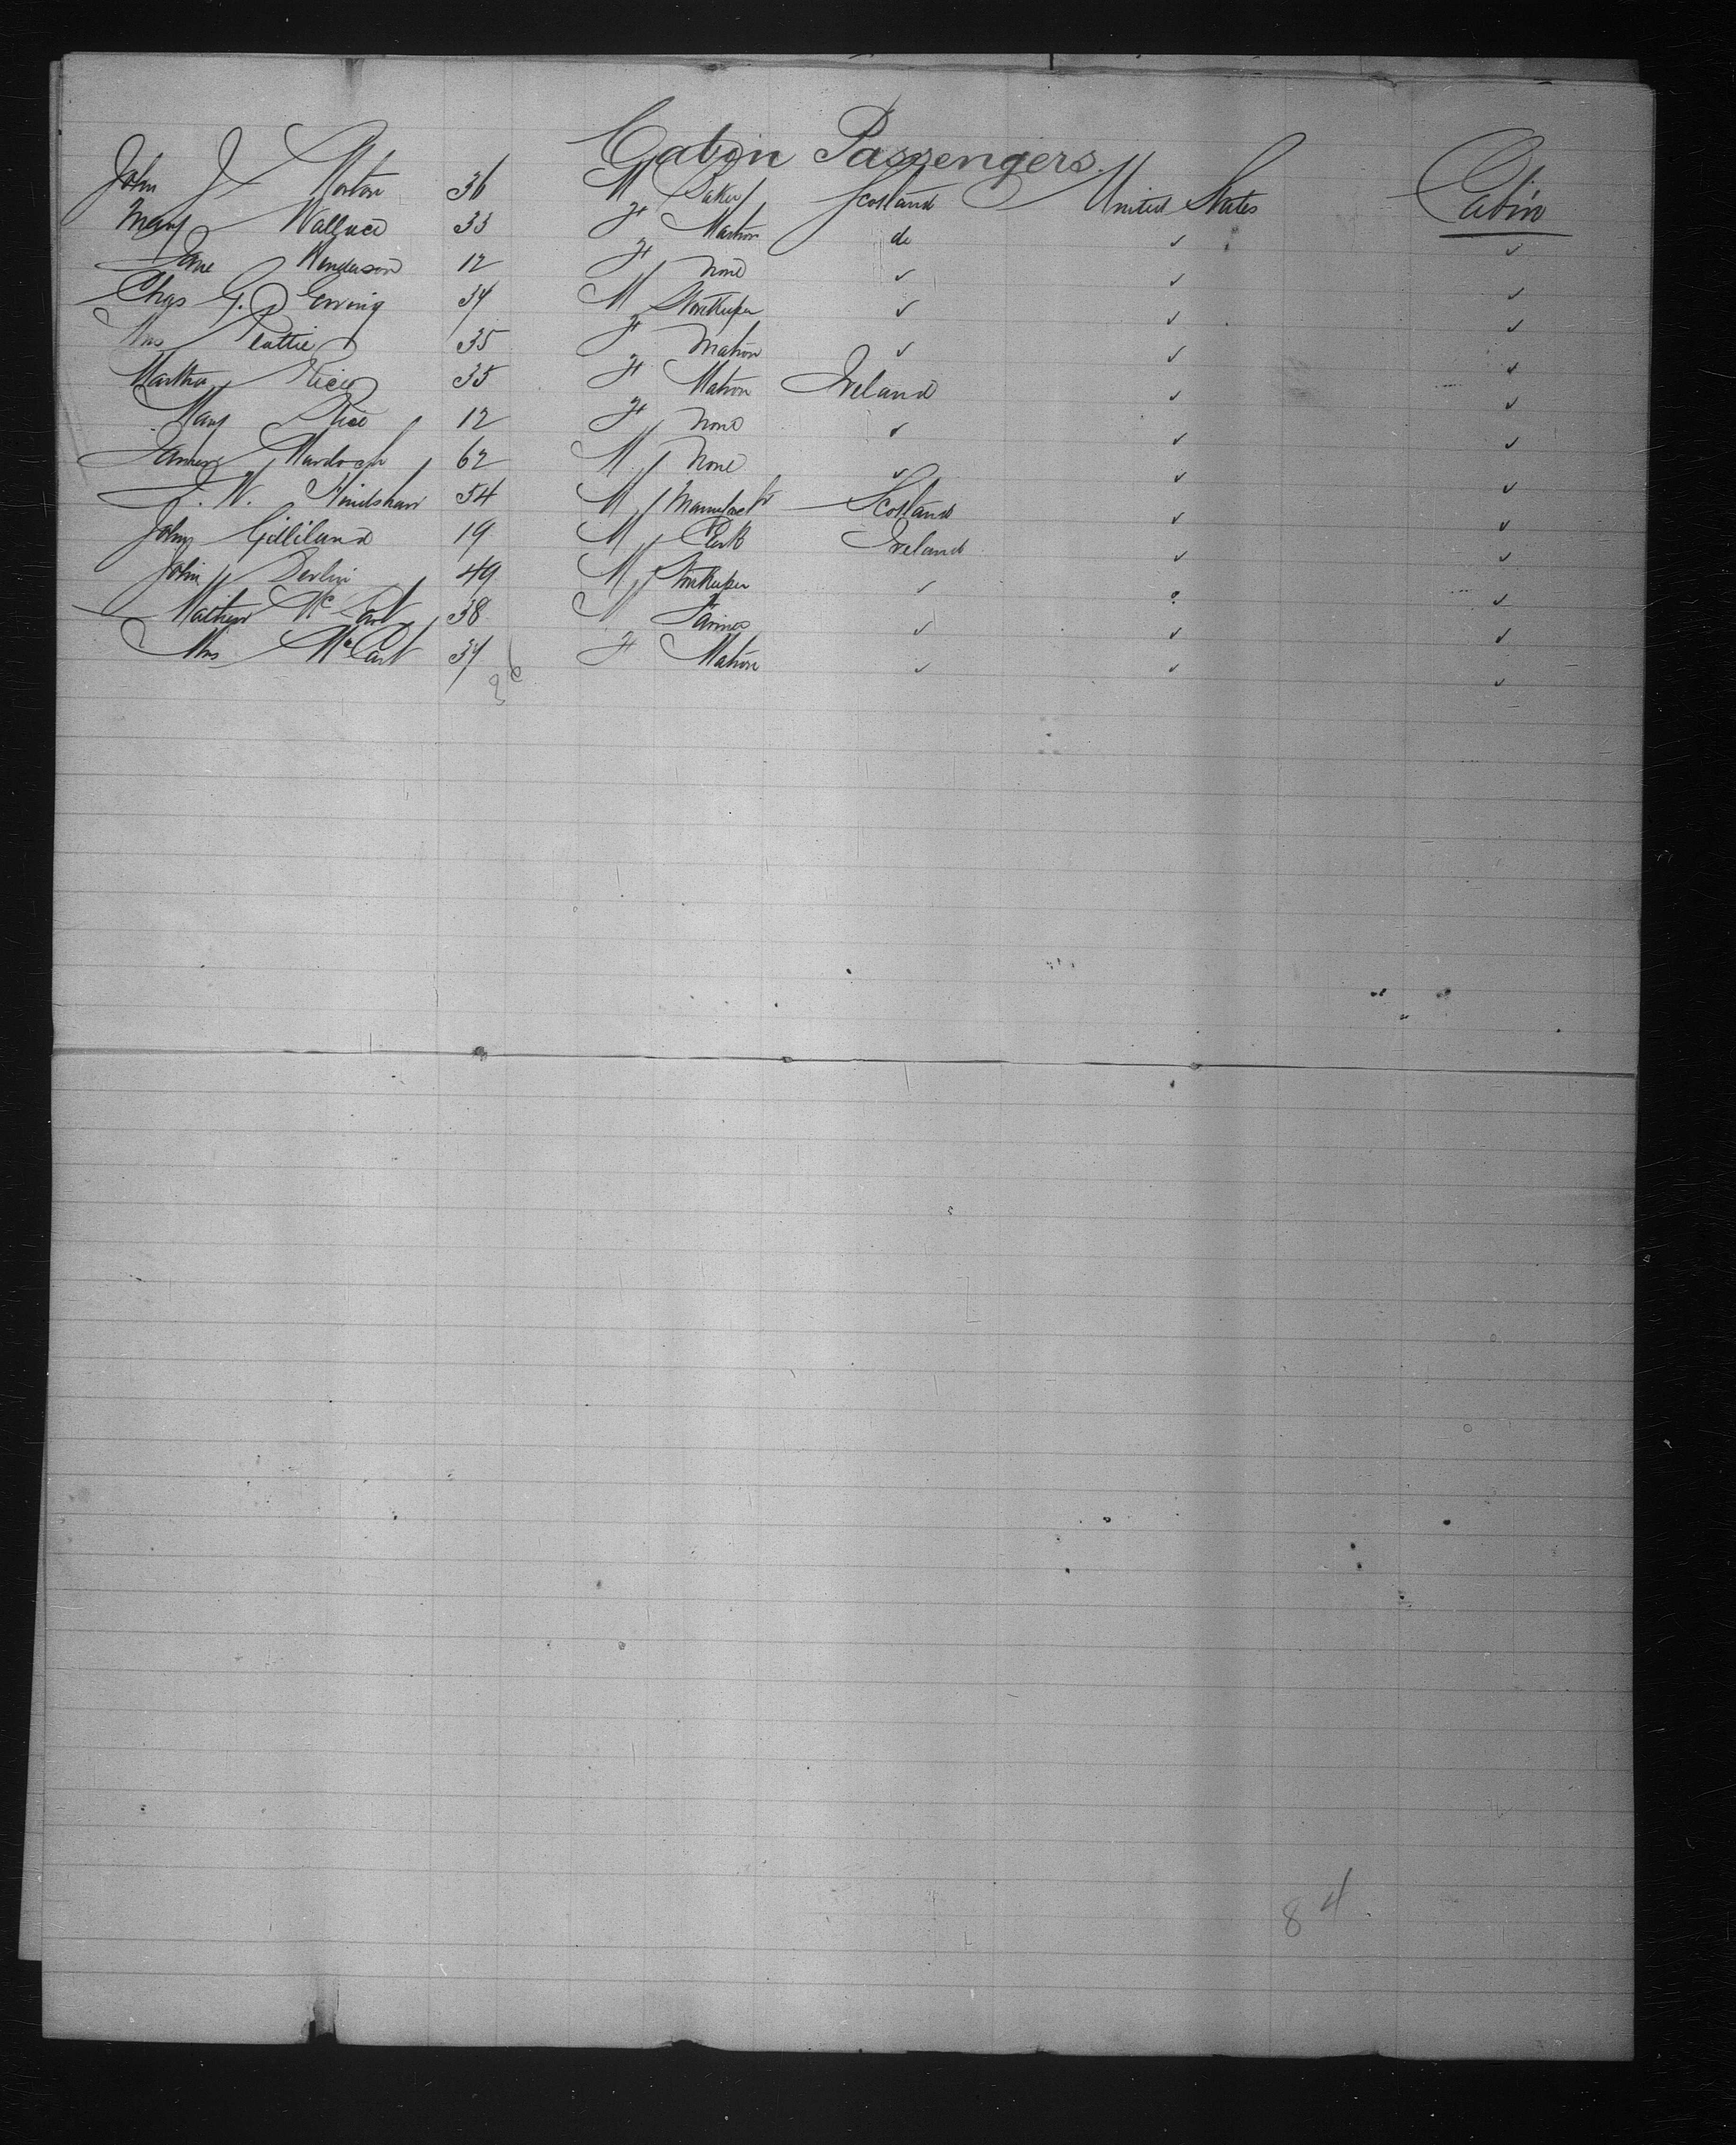 Cabin Passengers.
John J Morton 36 M Baker Scotland United States Cabin
Mary Wallace 33 F Matron do ✓ ✓
Jane Henderson 12 F None ✓ ✓ ✓
Chas G. Ewing 34 M Storekeeper ✓ ✓ ✓
Mrs Peattie 35 F Matron ✓ ✓ ✓
Martha Rice 35 F Matron Ireland ✓ ✓
Mary Rice 12 F None ✓ ✓ ✓
James Murdoch 62 M None ✓ ✓ ✓
J. W. 54 M Manufactr Scotland ✓ ✓
John Gilliland 19 M Clerk Ireland ✓ ✓
John Devlin 49 M Storekeeper ✓ ✓
Mathew McCart 38 M Farmer ✓ ✓ ✓
Mrs McCart 34 F Matron ✓ ✓ ✓
84